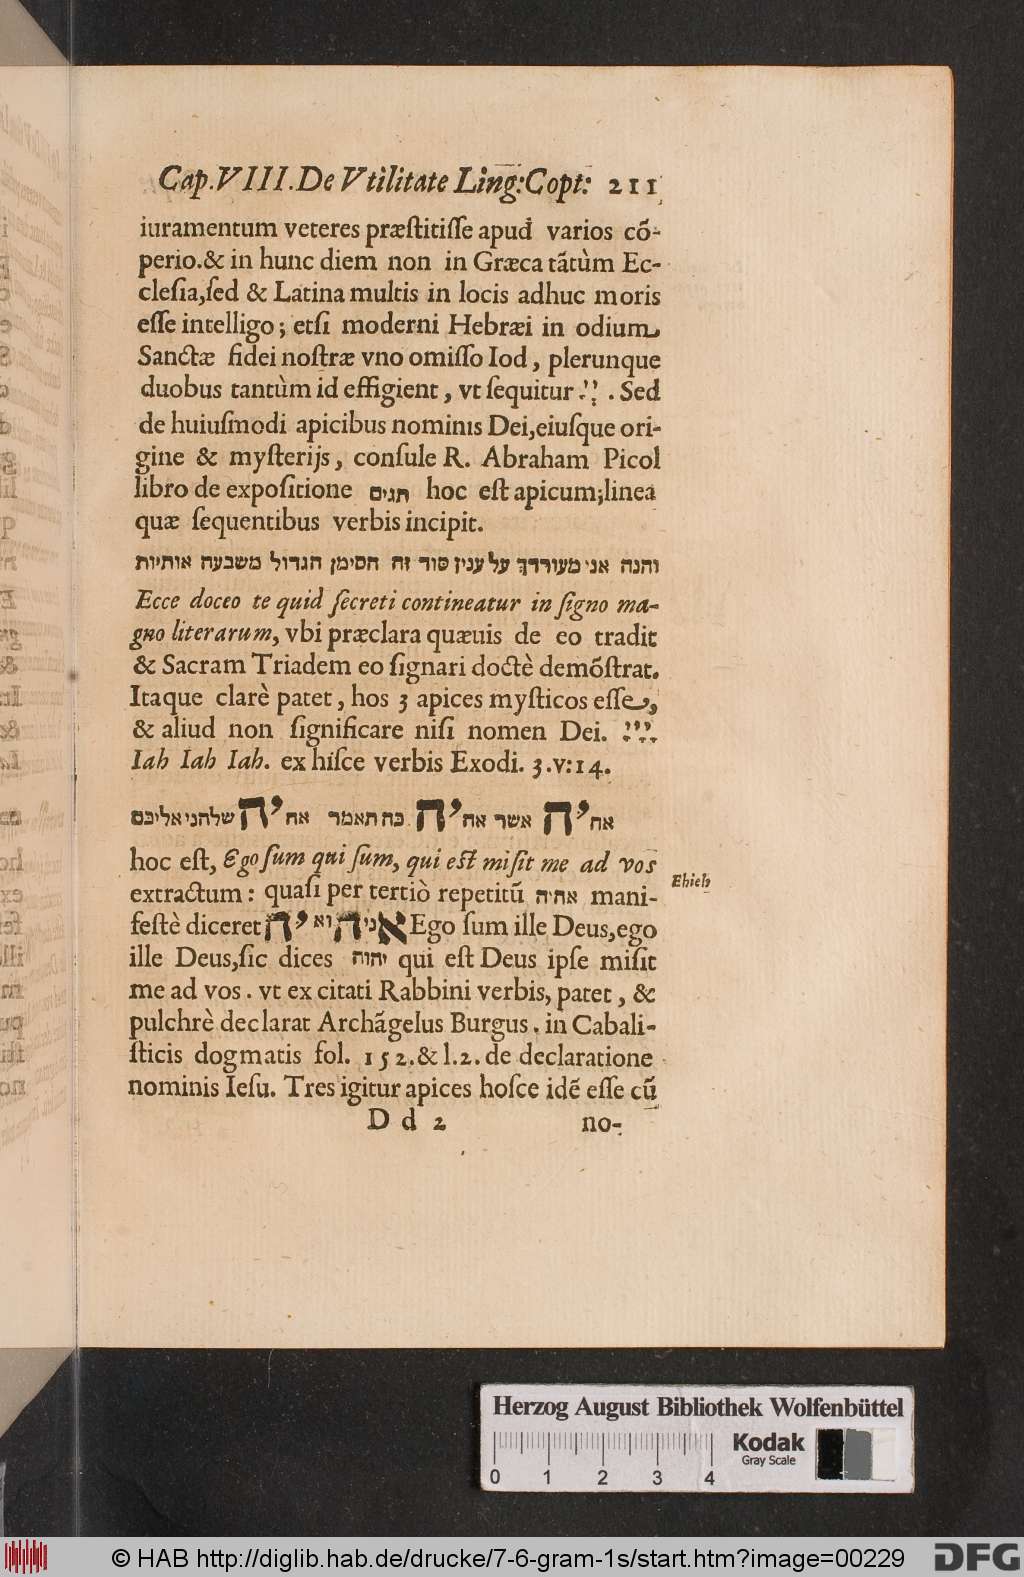 Cap.VIII.De Vtilitate Ling:Copt: 211
iuramentum veteres præſtitiſſe apud varios cõ-
perio.& in hunc diem non in Græca tãtùm Ec-
cleſia,ſed & Latina multis in locis adhuc moris
eſſe intelligo; etſi moderni Hebræi in odium
Sanctæ fidei noſtræ vno omiſſo Iod, plerunque
duobus tantùm id effigient, vt ſequitur . Sed
de huiuſmodi apicibus nominis Dei,eiuſque ori-
gine & myſterijs, conſule R. Abraham Picol
libro de expoſitione תגים hoc eſt apicum;linea
quæ ſequentibus verbis incipit.
והנה אני מעורדך על ענין סוד זה הסימן הגדול משבעה אותיות
Ecce doceo te quid ſecreti contineatur in ſigno ma-
gno literarum, vbi præclara quæuis de eo tradit
& Sacram Triadem eo ſignari doctè demõſtrat.
Itaque clarè patet, hos 3 apices myſticos eſſe,
& aliud non ſignificare niſi nomen Dei.
Iah Iah Iah. ex hiſce verbis Exodi. 3.v:14.
אהיה אשר אהיה כה תאמר אהיה שלהני אליכם
hoc eſt, Ego ſum qui ſum, qui eſt miſit me ad vos
extractum: quaſi per tertiò repetitũ אהיה mani-
Ehieh
feſtè diceret Ego ſum ille Deus,ego
ille Deus,ſic dices יהוה qui eſt Deus ipſe miſit
me ad vos. vt ex citati Rabbini verbis, patet, &
pulchrè declarat Archãgelus Burgus. in Cabali-
ſticis dogmatis fol. 152.& l.2. de declaratione
nominis Ieſu. Tres igitur apices hoſce idẽ eſſe cũ
D d 2 no-
Herzog August Bibliothek Wolfenbüttel
Kodak
Gray Scale
0 1 2 3 4
© HAB http://diglib.hab.de/drucke/7-6-gram-1s/start.htm?image=00229
DFG